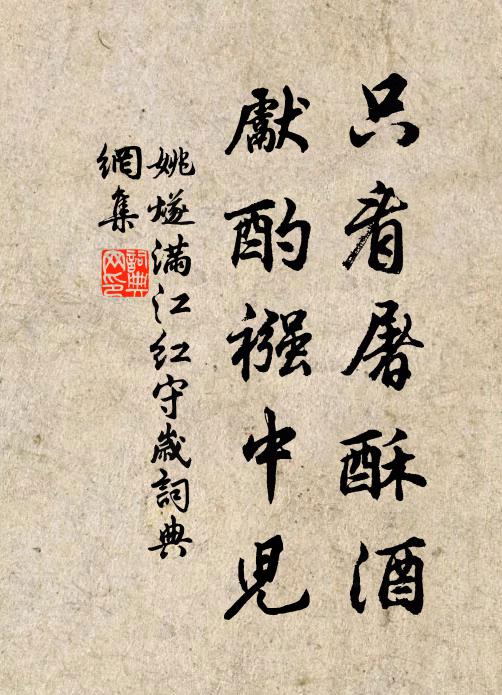 只看屠酥酒
獻酌襁中兒
姚燧滿江紅守歲詞典
網集
詞典
网印